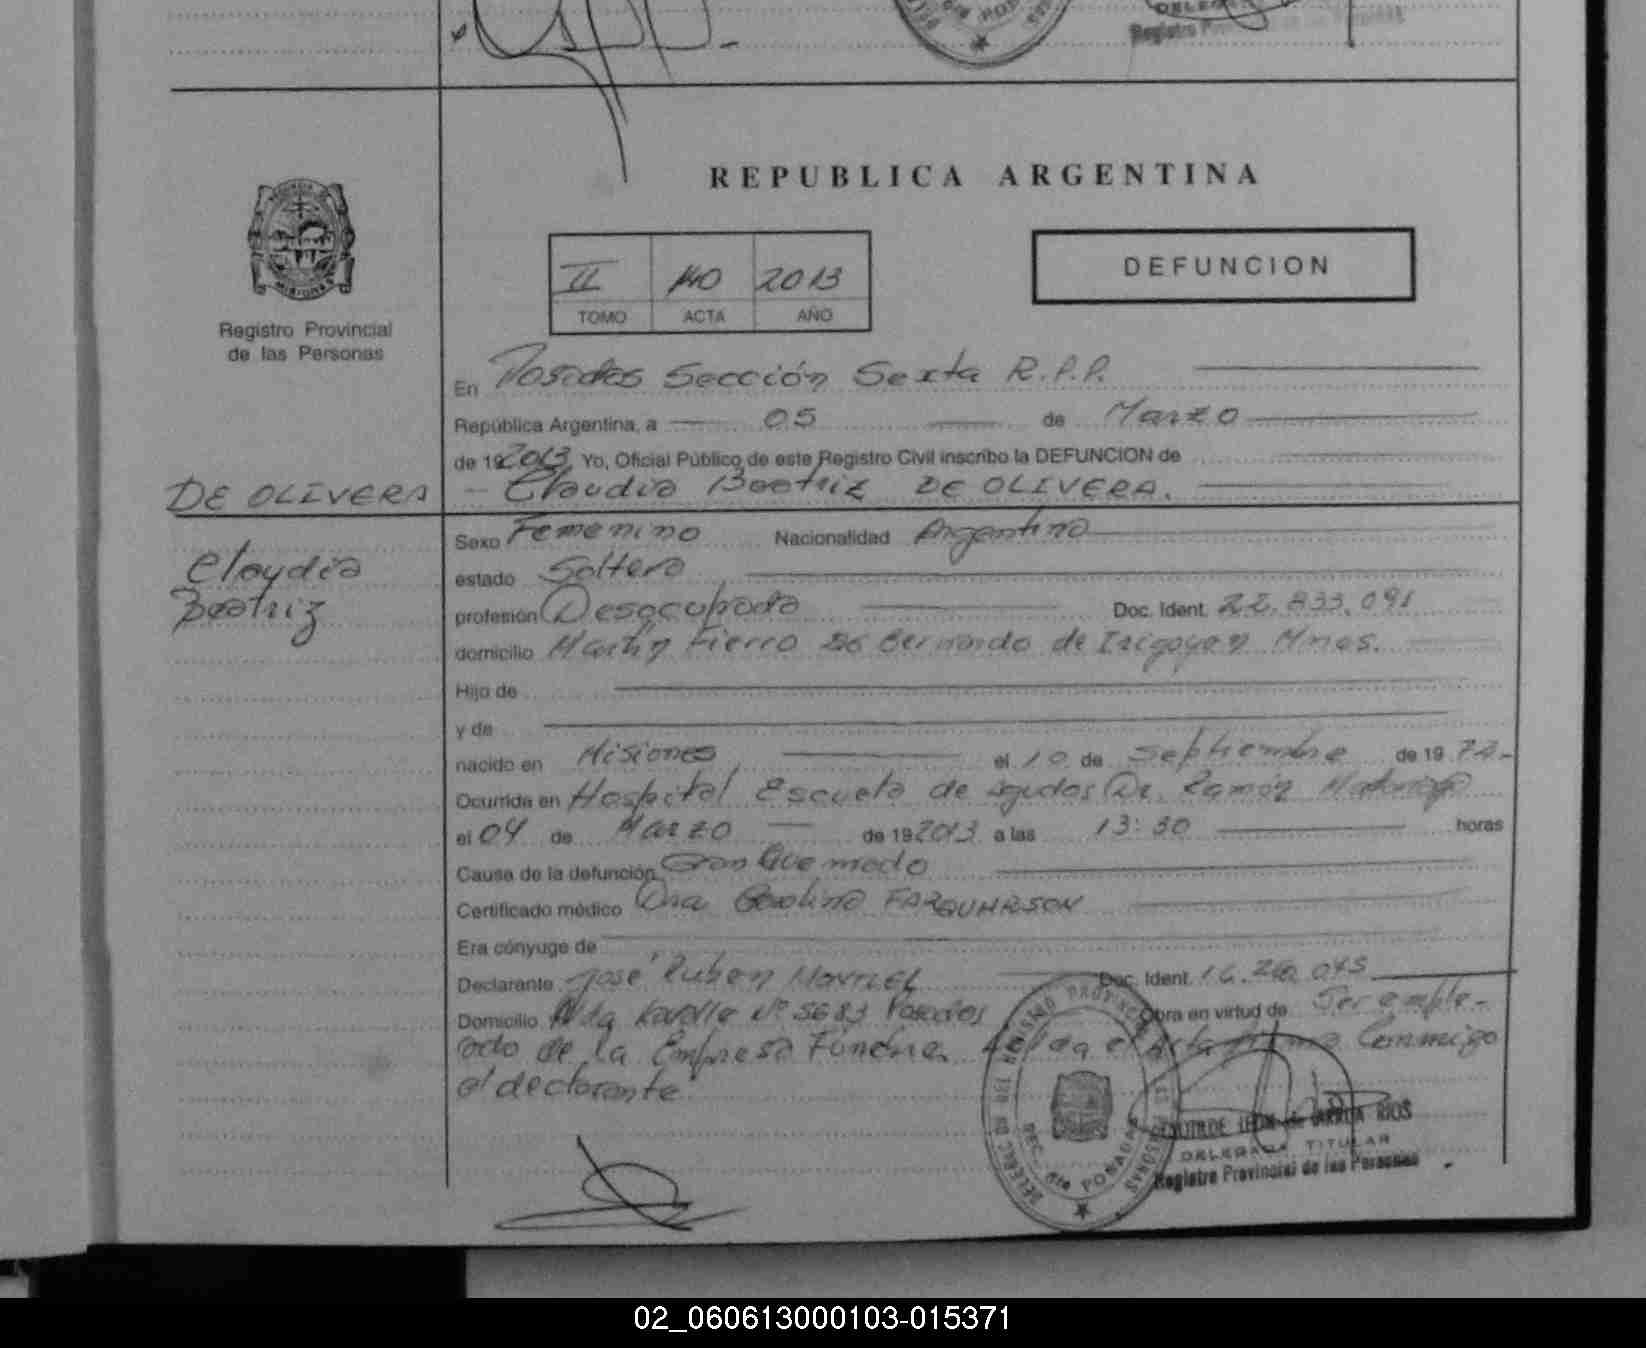 REPUBLICA ARGENTINA
II 140 2013
TOMO ACTA AÑO
DEFUNCION
Registro Provincial
de las Personas
En Posadas Sección Sexta R.P.P.
República Argentina, a 05 de Marzo
de 19 2013 Yo, Oficial Público de este Registro Civil inscribo la DEFUNCION de
DE OLIVERA - Claudia Beatriz DE OLIVERA.
Claudia
Beatriz
Sexo Femenino Nacionalidad Argentina
estado Soltera
profesión Desocupada Doc. Ident. 22.833.091
domicilio Martín Fierro Bernardo de Irigoyen Mnes.
Hijo de
y de
nacido en Misiones el 10 de Septiembre de 19 72-
Ocurrida en Hospital Escuela de agudos Dr. Ramón Madariaga
el 04 de Marzo de 19 2013 a las 13:30 horas
Causa de la defunción Gran Quemado
Certificado médico Dra Carolina FARQUHARSON
Era cónyuge de
Declarante José Ruben Doc. Ident.
Domicilio Avda Lavalle Nº 5683 Posadas Obra en virtud de Ser emple-
ado de la Empresa Funebre. Leída el Acta firma Conmigo
el declarante
DELEGADA TITULAR
Registro Provincial de las Personas
02_060613000103-015371